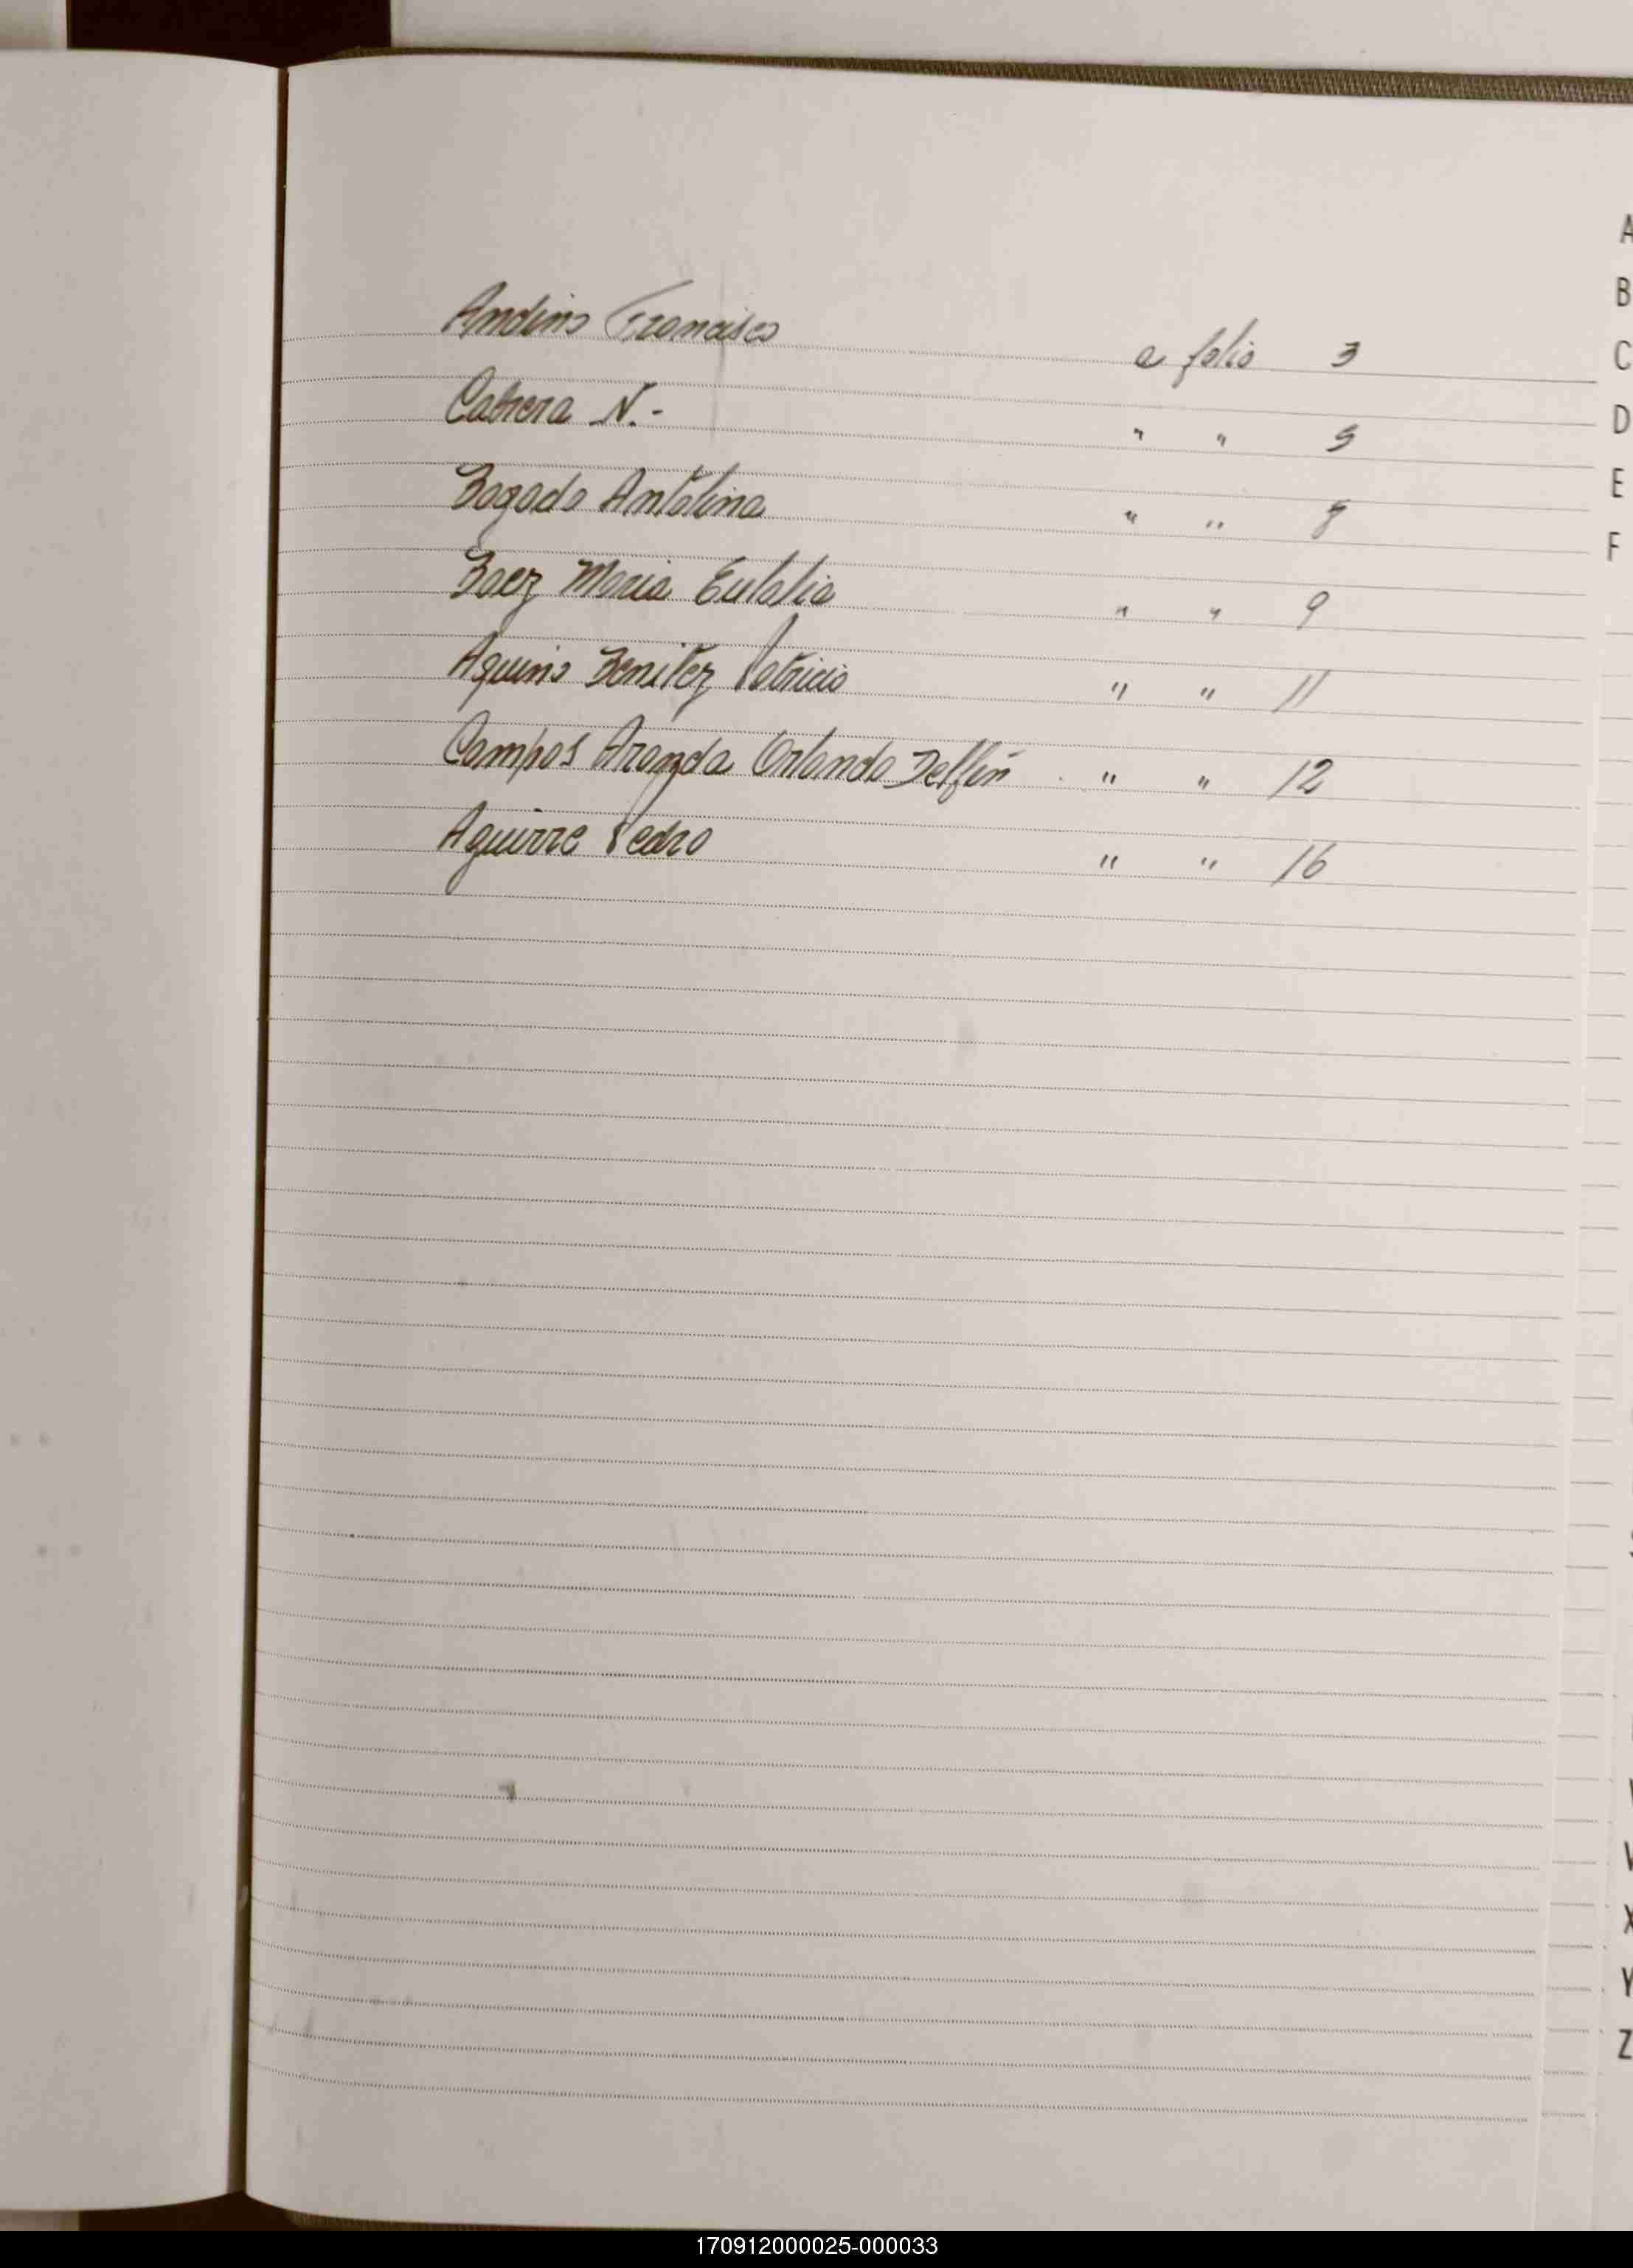 Andino Francisco a folio 3
Cabrera N.- " " 5
Bogado Antolina " " 8
Baez Maria Eulalia " " 9
Aquino Benitez Patricio " " 11
Campos Aranda Orlando Delfin " " 12
Aguirre Pedro " " 16
A
B
C
D
E
F
X
Y
Z
170912000025-000033